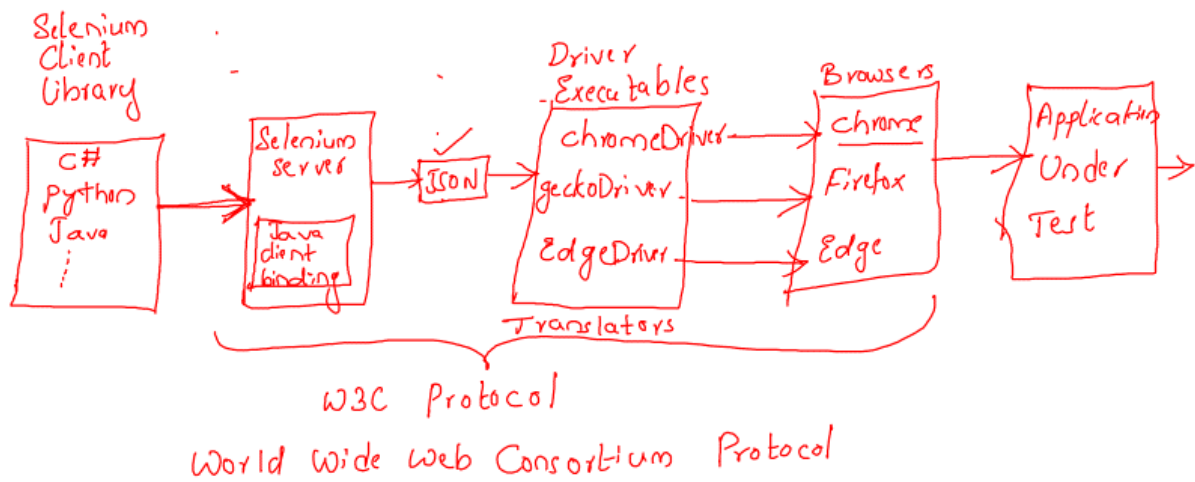 Selenium
Client
Library
C#
Python
Java
Selenium
server
Java
client
binding
JSON
Driver
Executables
chromeDriver
geckoDriver
EdgeDriver
Translators
Browsers
chrome
Firefox
Edge
Application
Under
Test
W3C Protocol
World Wide Web Consortium Protocol